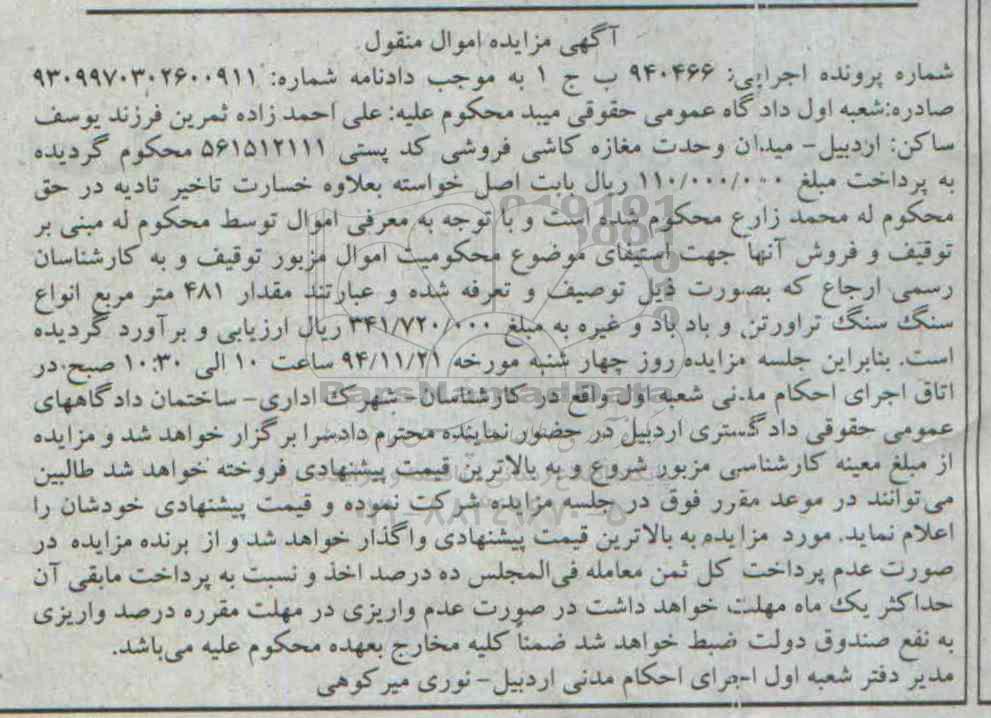 آگهی مزایده اموال منقول
شماره پرونده اجرایی: ۹۴۰۴۶۶ ب ج ۱ به موجب دادنامه شماره: ۹۳۰۹۹۷۰۳۰۲۶۰۰۹۱۱
صادره:شعبه اول دادگاه عمومی حقوقی میبد محکوم علیه: علی احمد زاده ثمرین فرزند یوسف
ساکن: اردبیل- میدان وحدت مغازه کاشی فروشی کد پستی ۵۶۱۵۱۲۱۱۱ محکوم گردیده
به پرداخت مبلغ ۱۱۰/۰۰۰/۰۰۰ ریال بابت اصل خواسته بعلاوه خسارت تاخیر تادیه در حق
محکوم له محمد زارع محکوم شده است و با توجه به معرفی اموال توسط محکوم له مبنی بر
توقیف و فروش آنها جهت استیفای موضوع محکومیت اموال مزبور توقیف و به کارشناسان
رسمی ارجاع که بصورت ذیل توصیف و تعرفه شده و عبارتند مقدار ۴۸۱ متر مربع انواع
سنگ سنگ تراورتن و باد باد و غیره به مبلغ ۳۴۱/۷۲۰/۰۰۰ ریال ارزیابی و برآورد گردیده
است. بنابراین جلسه مزایده روز چهار شنبه مورخه ۹۴/۱۱/۲۱ ساعت ۱۰ الی ۱۰:۳۰ صبح در
اتاق اجرای احکام مدنی شعبه اول واقع در کارشناسان- شهرک اداری- ساختمان دادگاههای
عمومی حقوقی دادگستری اردبیل در حضور نماینده محترم دادسرا برگزار خواهد شد و مزایده
از مبلغ معینه کارشناسی مزبور شروع و به بالاترین قیمت پیشنهادی فروخته خواهد شد طالبین
می‌توانند در موعد مقرر فوق در جلسه مزایده شرکت نموده و قیمت پیشنهادی خودشان را
اعلام نماید. مورد مزایده به بالاترین قیمت پیشنهادی واگذار خواهد شد و از برنده مزایده در
صورت عدم پرداخت کل ثمن معامله فی‌المجلس ده درصد اخذ و نسبت به پرداخت مابقی آن
حداکثر یک ماه مهلت خواهد داشت در صورت عدم واریزی در مهلت مقرره درصد واریزی
به نفع صندوق دولت ضبط خواهد شد ضمناً کلیه مخارج بعهده محکوم علیه می‌باشد.
مدیر دفتر شعبه اول اجرای احکام مدنی اردبیل- نوری میرکوهی
ParsNamadData